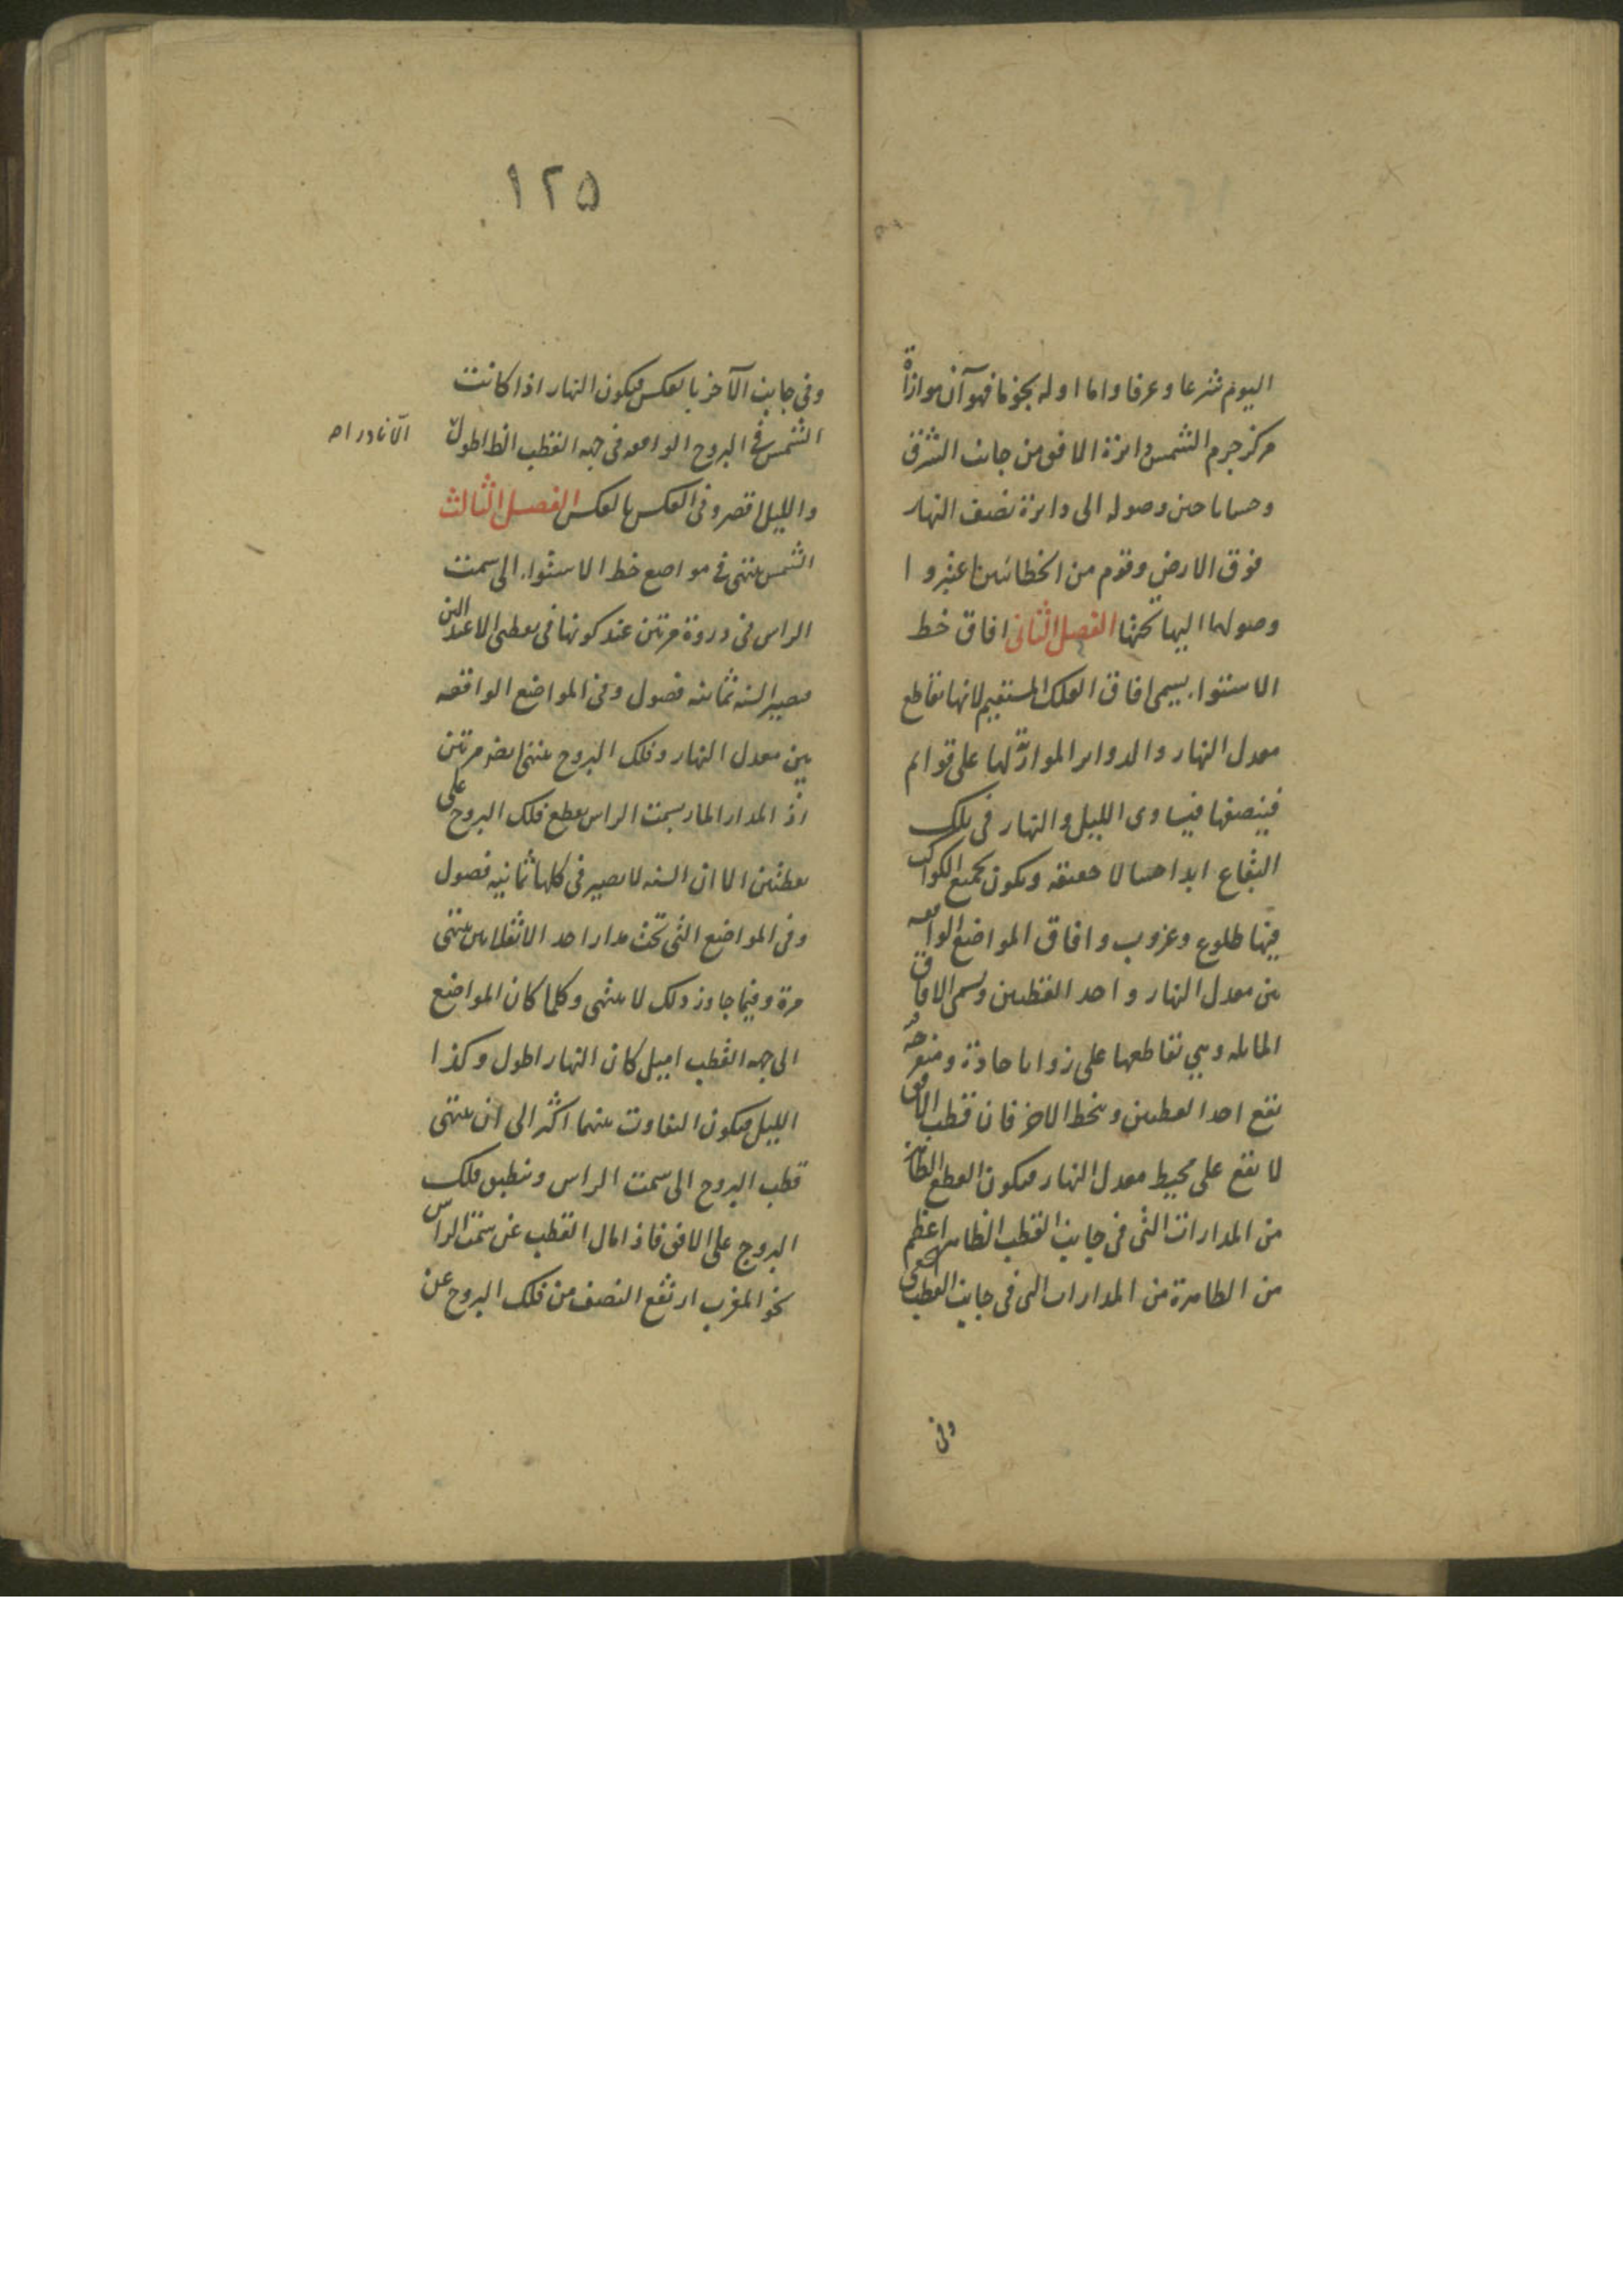 اليوم شرعا وعرفا واما اوله نجوما فهو آن موازاة
مركز جرم الشمس دائرة الافق من جانب الشرق
وحسابا حين وصوله الى دايرة نصف النهار
فوق الارض وقوم من الخطائيين اعتبروا
وصولها اليها تحتها الفصل الثانى افاق خط
الاستواء يسمى افاق الفلك المستقيم لانها تقاطع
معدل النهار والدواير الموازية لها على قوائم
فينصفها فيساوى الليل والنهار فى تلك
البقاع ابدا حسا لا حقيقة ويكون لجميع الكواكب
فيها طلوع وغروب وافاق المواضع الواقعه
بين معدل النهار واحد القطبين وتسمى الافاق
المايله وهى تقاطعها على زوايا حادة ومنفرجه
يقع احد القطبين وينحط الاخر فان قطب الافق
لا يقع على محيط معدل النهار فيكون القطع الظاهرة
من المدارات التى فى جانب القطب الظاهر اعظم
من الظاهرة من المدارات التى فى جانب القطب الخفى
وفى
١٢۵
وفى جانب الآخر بالعكس فيكون النهار اذا كانت
الشمس فى البروج الواقعه فى جهه القطب الظ اطول
الا نادرا
والليل اقصر وفى العكس بالعكس الفصل الثالث
الشمس تنتهى فى مواضع خط الاستواء الى سمت
الراس فى دورة مرتين عند كونها فى نقطتى الاعتدالين
فيصير السنه ثمانيه فصول وفى المواضع الواقعه
بين معدل النهار وفلك البروج تنتهى ايضا مرتين
اذ المدار المار بسمت الراس يقطع فلك البروج على
نقطتين الا ان السنه لا يصير فى كلها ثمانيه فصول
وفى المواضع التى تحت مدار احد الانقلابين تنتهى
مرة وفيما جاوز ذلك لا ينتهى وكلما كان المواضع
الى جهه القطب اميل كان النهار اطول وكذا
الليل فيكون التفاوت بينهما اكثر الى ان ينتهى
قطب البروج الى سمت الراس وينطبق فلك
البروج على الافق فاذا مال القطب عن سمت الراس
نحو المغرب ارتفع النصف من فلك البروج عن